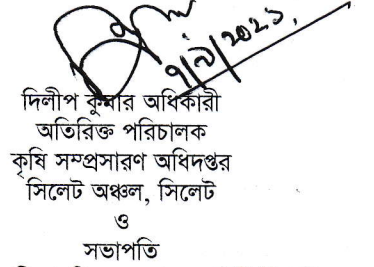 ৭/৬/২০২১
দিলীপ কুমার অধিকারী
অতিরিক্ত পরিচালক
কৃষি সম্প্রসারণ অধিদপ্তর
সিলেট অঞ্চল, সিলেট
ও
সভাপতি